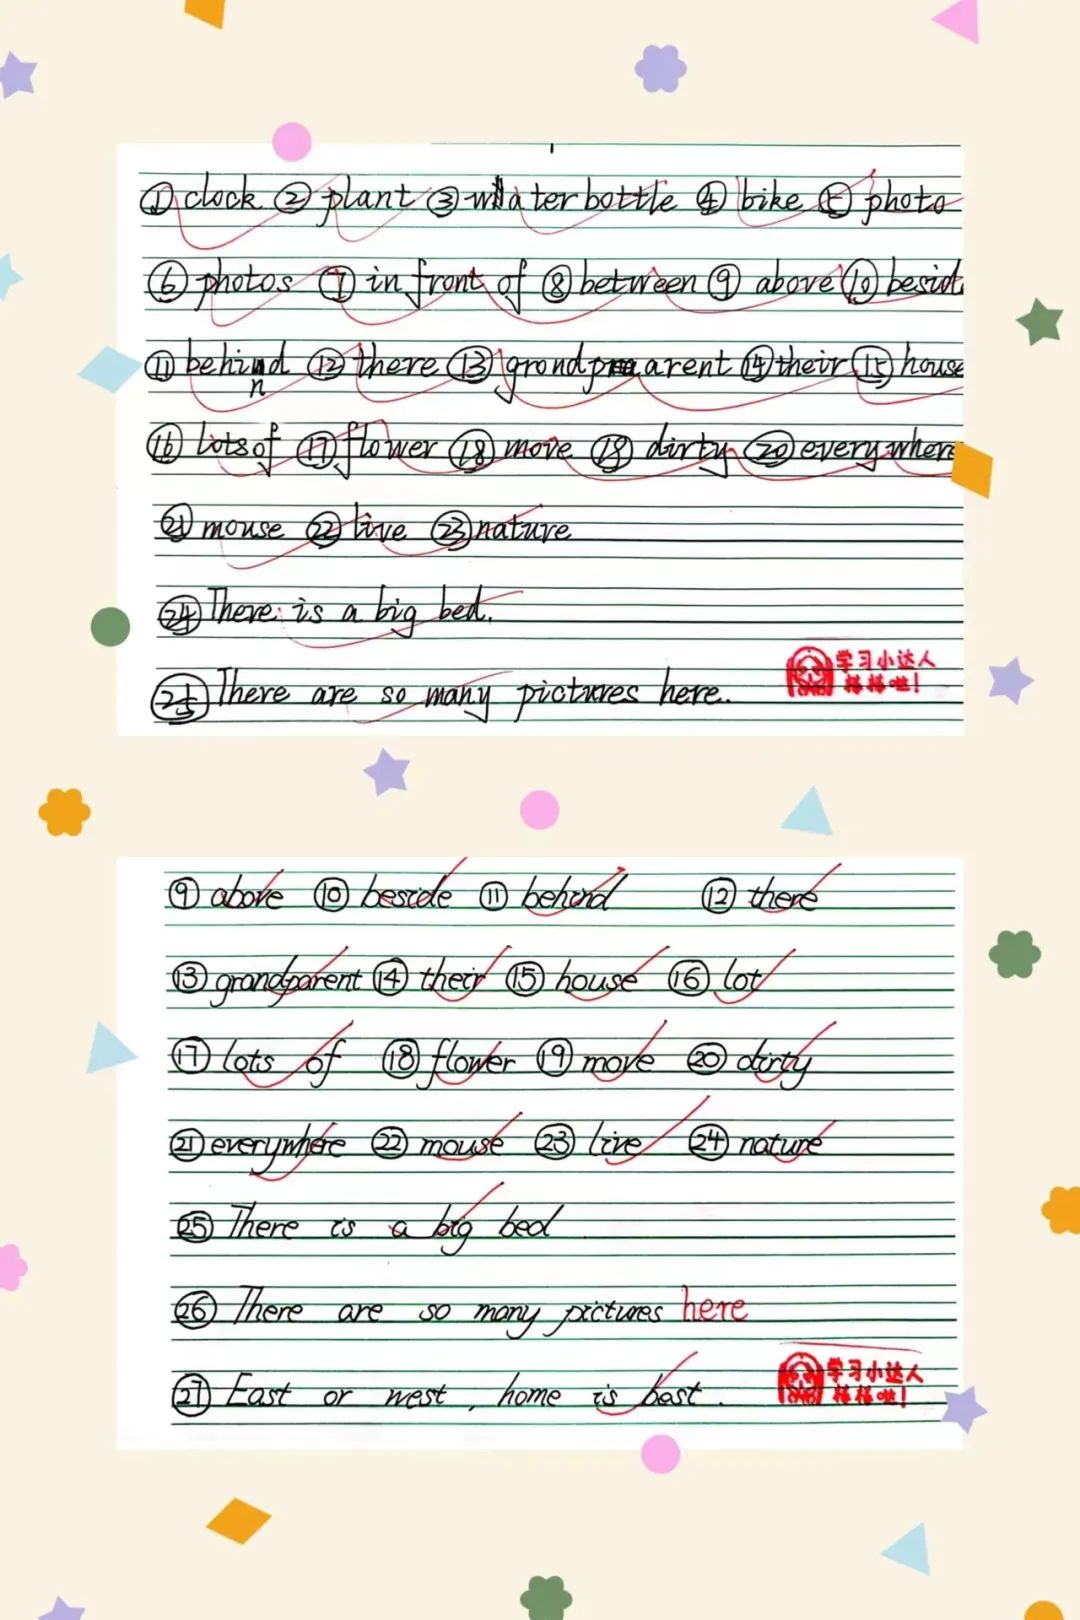 ① clock ② plant ③ water bottle ④ bike ⑤ photo
⑥ photos ⑦ in front of ⑧ between ⑨ above ⑩ besid
⑪ behind ⑫ there ⑬ grondparent ⑭ their ⑮ house
n
⑯ lots of ⑰ flower ⑱ move ⑲ dirty ⑳ everywhere
㉑ mouse ㉒ live ㉓ nature
㉔ There is a big bed.
学习小达人
棒棒哒!
㉕ There are so many pictures here.
⑨ above ⑩ beside ⑪ behind ⑫ there
⑬ grandparent ⑭ their ⑮ house ⑯ lot
⑰ lots of ⑱ flower ⑲ move ⑳ dirty
㉑ everywhere ㉒ mouse ㉓ live ㉔ nature
㉕ There is a big bed
㉖ There are so many pictures here
㉗ East or west, home is best.
学习小达人
棒棒哒!